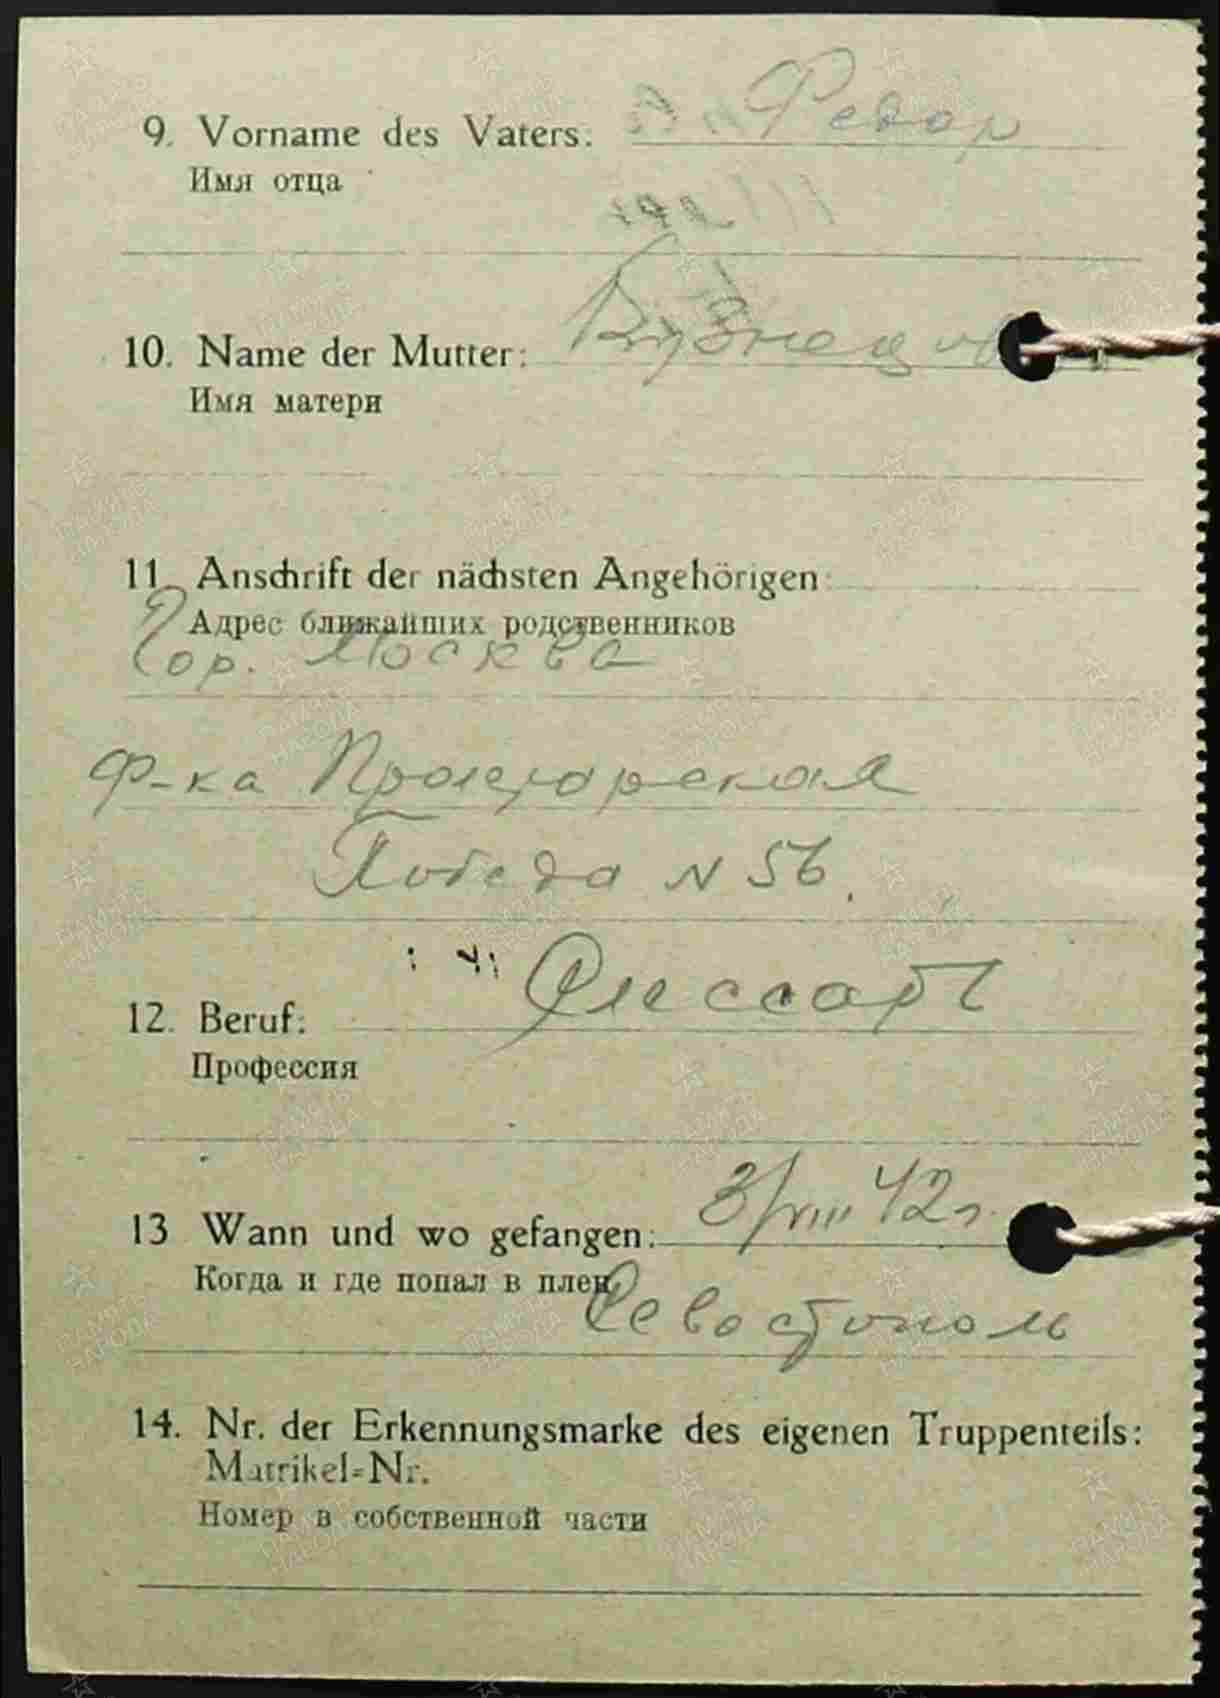 9. Vorname des Vaters: Федор
Имя отца
10. Name der Mutter: Кузнецов
Имя матери
11. Anschrift der nächsten Angehörigen:
Адрес ближайших родственников
Гор. Москва
Ф-ка
Победа N 56.
12. Beruf:
Профессия
13 Wann und wo gefangen: 3/VIII 42 г.
Когда и где попал в плен
Севостополь
14. Nr. der Erkennungsmarke des eigenen Truppenteils:
Matrikel=Nr.
Номер в собственной части